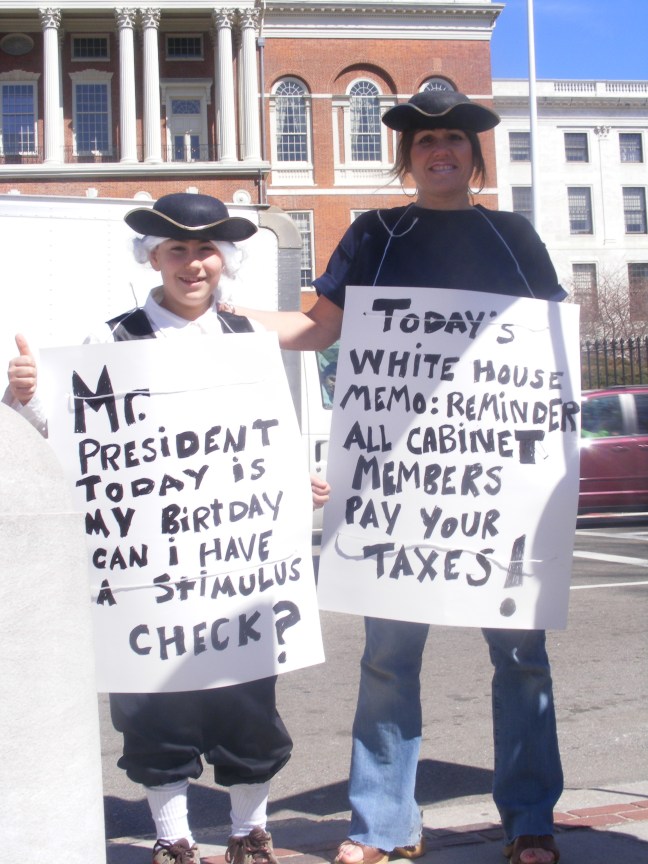 Mr.
PRESIDENT
TODAY iS
MY BiRTDAY
CAN i HAVE
A STiMULUS
CHECK?
TODAY'S
WHITE HOUSE
MEMO: REMINDER
ALL CABINET
MEMBERS
PAY YOUR
TAXES!